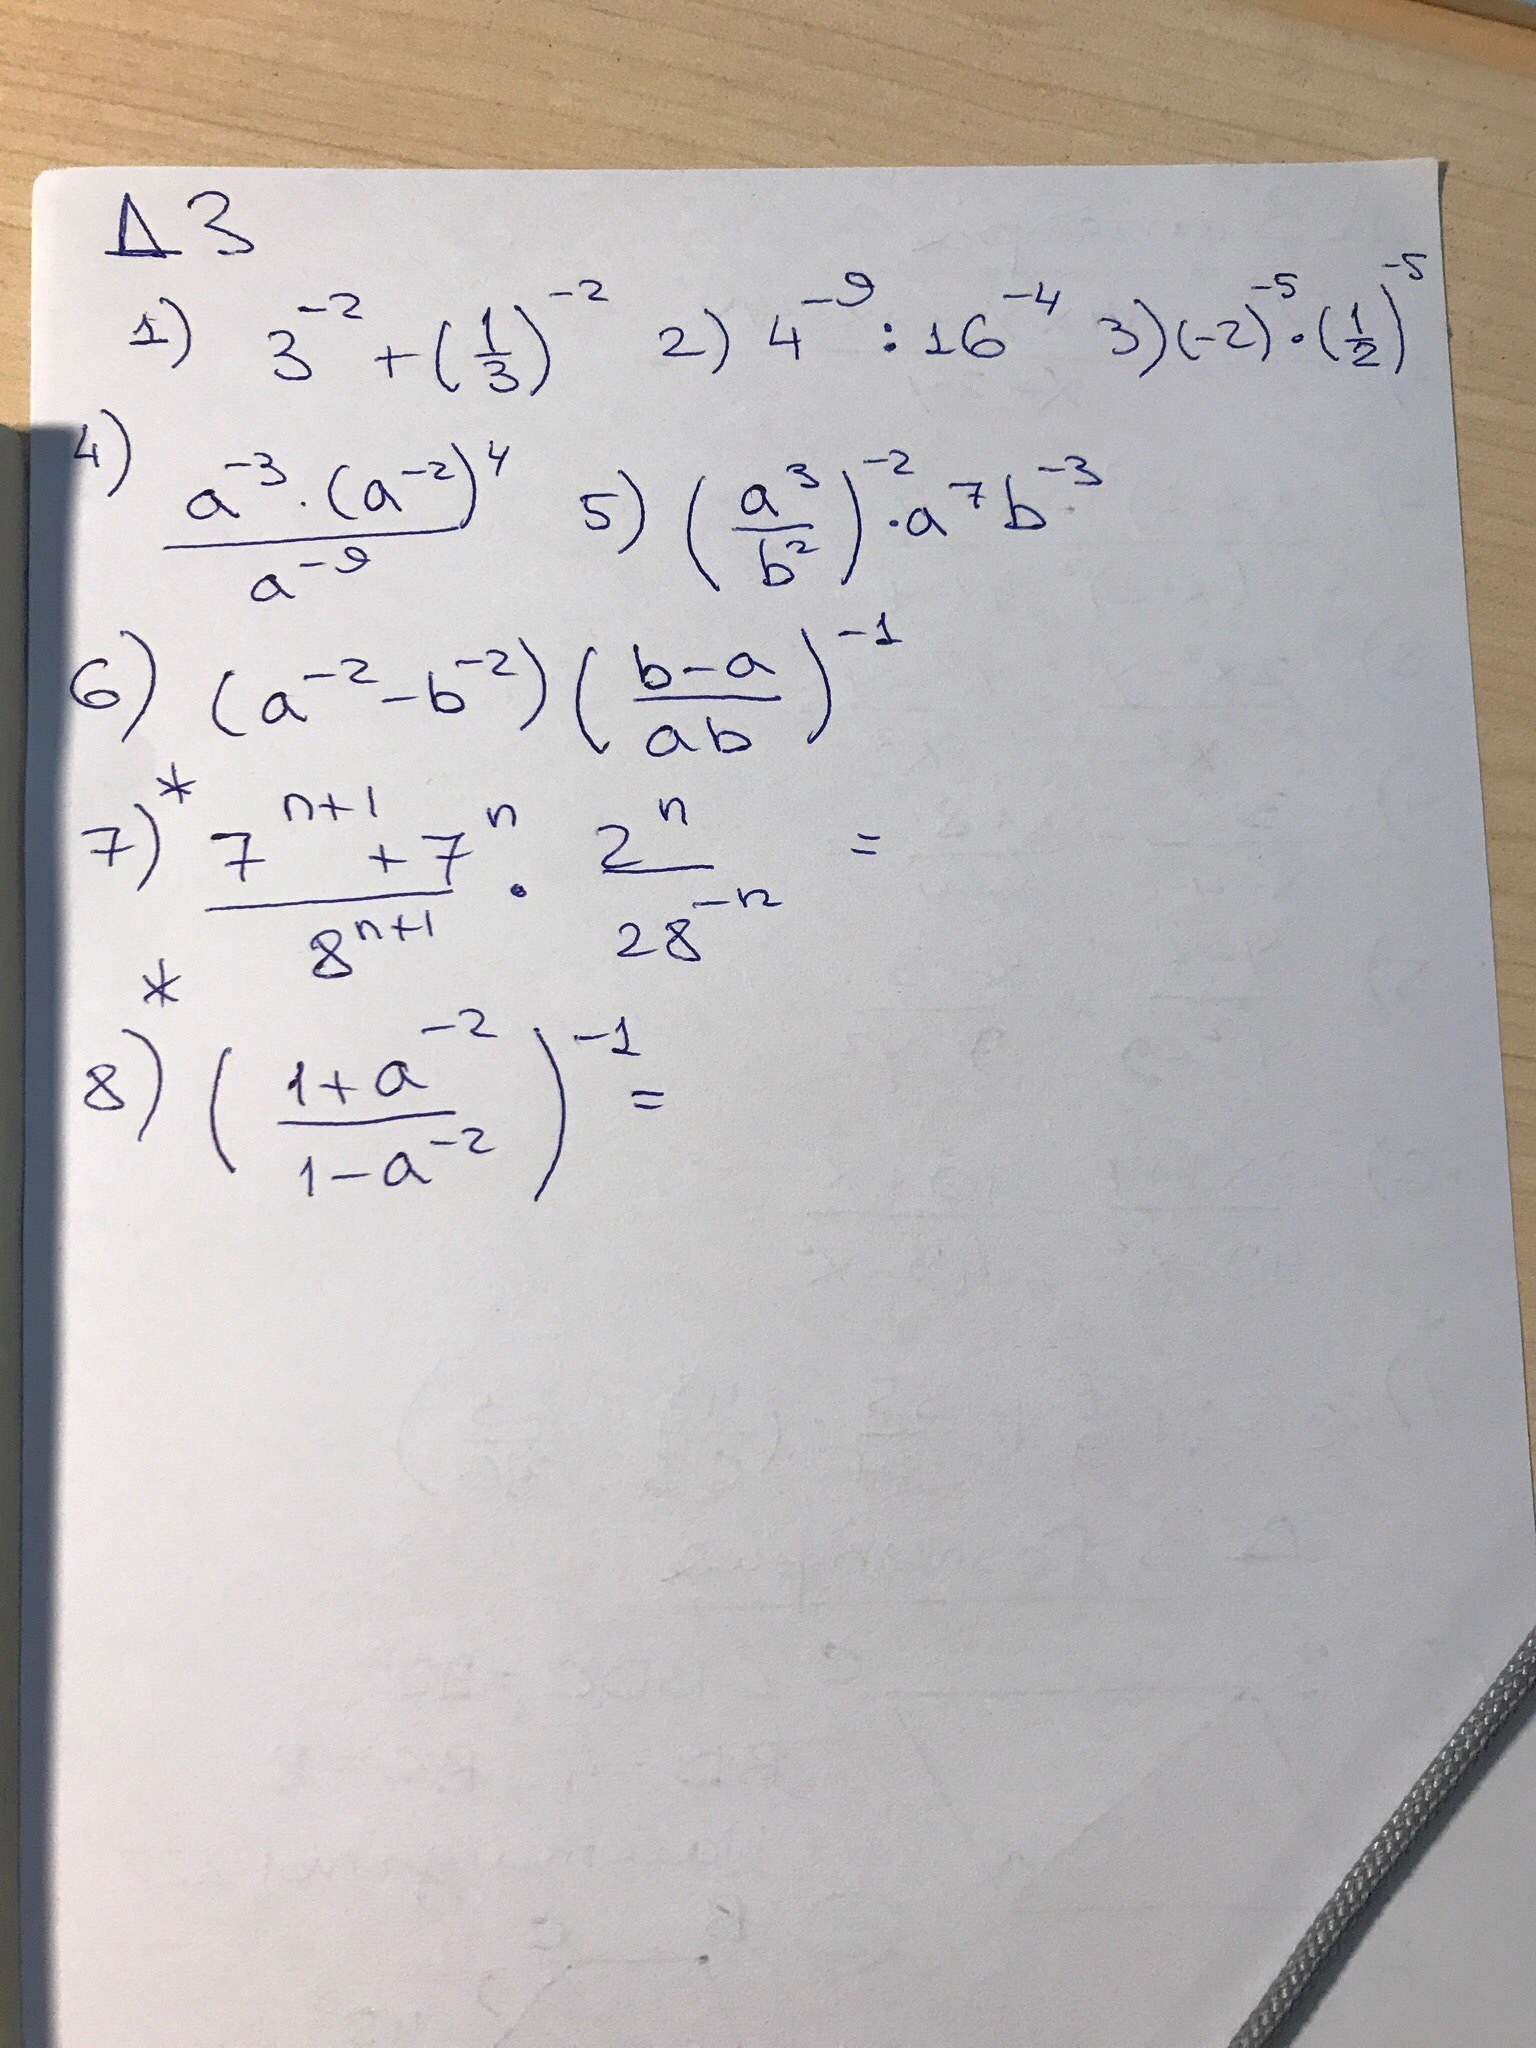 ДЗ
1) 3^{-2} + (1/3)^{-2} 2) 4^{-9} : 16^{-4} 3) (-2)^{-5} · (1/2)^{-5}
4) (a^{-3} · (a^{-2})^4)/(a^{-9}) 5) (a^3/b^2)^{-2} · a^7 b^{-3}
6) (a^{-2} - b^{-2}) ((b-a)/(ab))^{-1}
7)* (7^{n+1} + 7^n)/(8^{n+1}) · (2^n)/(28^{-n}) =
8)* ((1+a^{-2})/(1-a^{-2}))^{-1} =